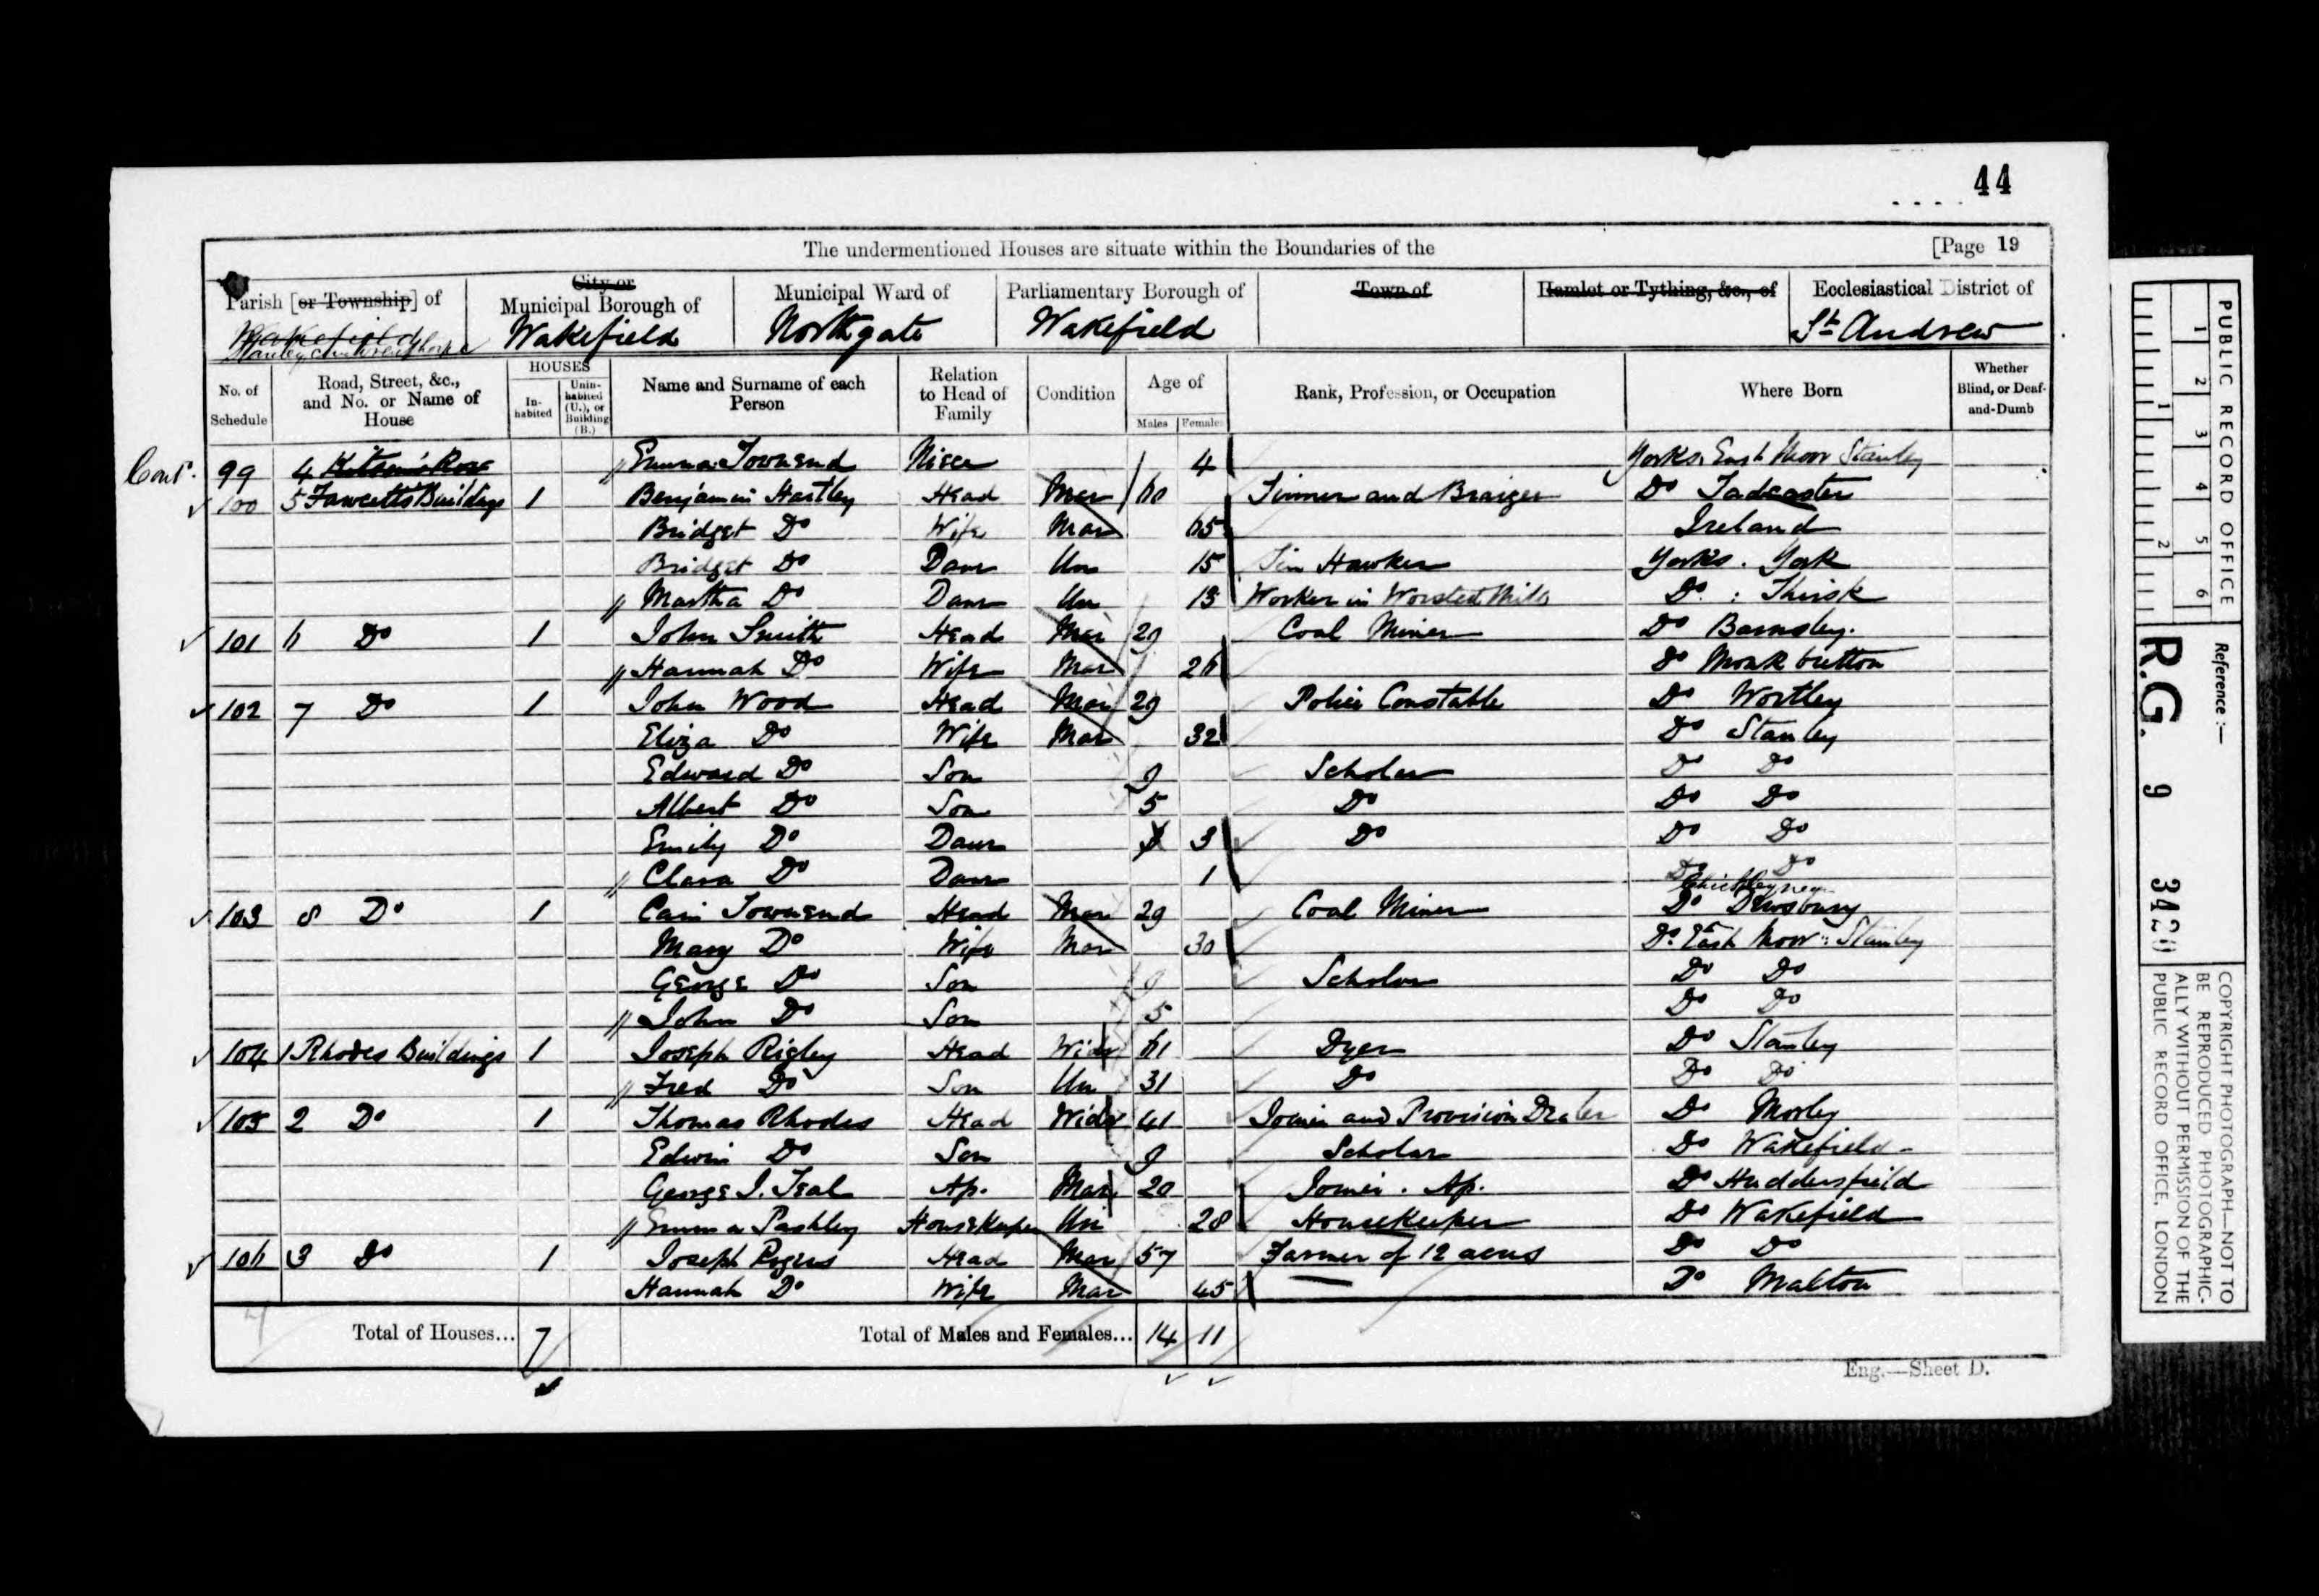 44
The undermentioned Houses are situate within the Boundaries of the [Page 19
Parish [or Township] of City or Municipal Borough of Municipal Ward of Parliamentary Borough of Town of Hamlet or Tything, &c., of Ecclesiastical District of
Wakefield Wakefield Northgate Wakefield St. Andrew
No. of Schedule Road, Street, &c., and No. or Name of House HOUSES Inhabited Uninhabited (U.), or Building (B.) Name and Surname of each Person Relation to Head of Family Condition Age of Males Females Rank, Profession, or Occupation Where Born Whether Blind, or Deaf-and-Dumb
Cont. 99 4 Emma Townend Niece 4 Yorks. East Moor Stanley
100 5 Fawcetts Buildings 1 Benjamin Hartley Head Mar 60 Tinner and Braizer Do Tadcaster
Bridget Do Wife Mar 65 Ireland
Bridget Do Daur Un 15 Tin Hawker Yorks. York
Martha Do Daur Un 13 Worker in Worsted Mills Do : Thirsk
101 6 Do 1 John Smith Head Mar 29 Coal Miner Do Barnsley.
Hannah Do Wife Mar 26 Do Monk bretton
102 7 Do 1 John Wood Head Mar 29 Police Constable Do Wortley
Eliza Do Wife Mar 32 Do Stanley
Edward Do Son 9 Scholar Do Do
Albert Do Son 5 Do Do Do
Emily Do Daur 3 3 Do Do Do
Clara Do Daur 1 Do Do
103 8 Do 1 Cain Townend Head Mar 29 Coal Miner Do Chickley near Dewsbury
Mary Do Wife Mar 30 Do. East Moor : Stanley
George Do Son 9 Scholar Do Do
John Do Son 5 Do Do
104 1 Rhodes Buildings 1 Joseph Rigley Head Widr 61 Dyer Do Stanley
Fred Do Son Un 31 Do Do Do
105 2 Do 1 Thomas Rhodes Head Widr 41 Joiner and Provision Dealer Do Morley
Edwin Do Son 9 Scholar Do Wakefield
George I. Teal Ap. Mar 20 Joiner. Ap. Do Huddersfield
Emma Pashley Housekeeper Un 28 Housekeeper Do Wakefield
106 3 Do 1 Joseph Rogers Head Mar 57 Farmer of 12 acres Do Do
Hannah Do Wife Mar 45 Do Malton
Total of Houses... 7 Total of Males and Females... 14 11
Eng.—Sheet D.
PUBLIC RECORD OFFICE
1 2 3 4 5 6
1 2
Reference :—
R.G. 9 3420
COPYRIGHT PHOTOGRAPH—NOT TO
BE REPRODUCED PHOTOGRAPHIC-
ALLY WITHOUT PERMISSION OF THE
PUBLIC RECORD OFFICE, LONDON